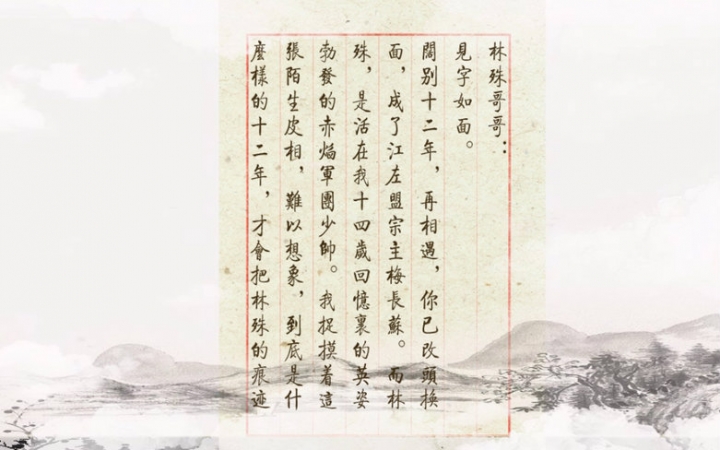 林殊哥哥：
見字如面。
闊别十二年，再相遇，你已改頭換
面，成了江左盟宗主梅長蘇。而林
殊，是活在我十四歲回憶裏的英姿
勃發的赤焰軍團少帥。我捉摸着這
張陌生皮相，難以想象，到底是什
麽樣的十二年，才會把林殊的痕迹